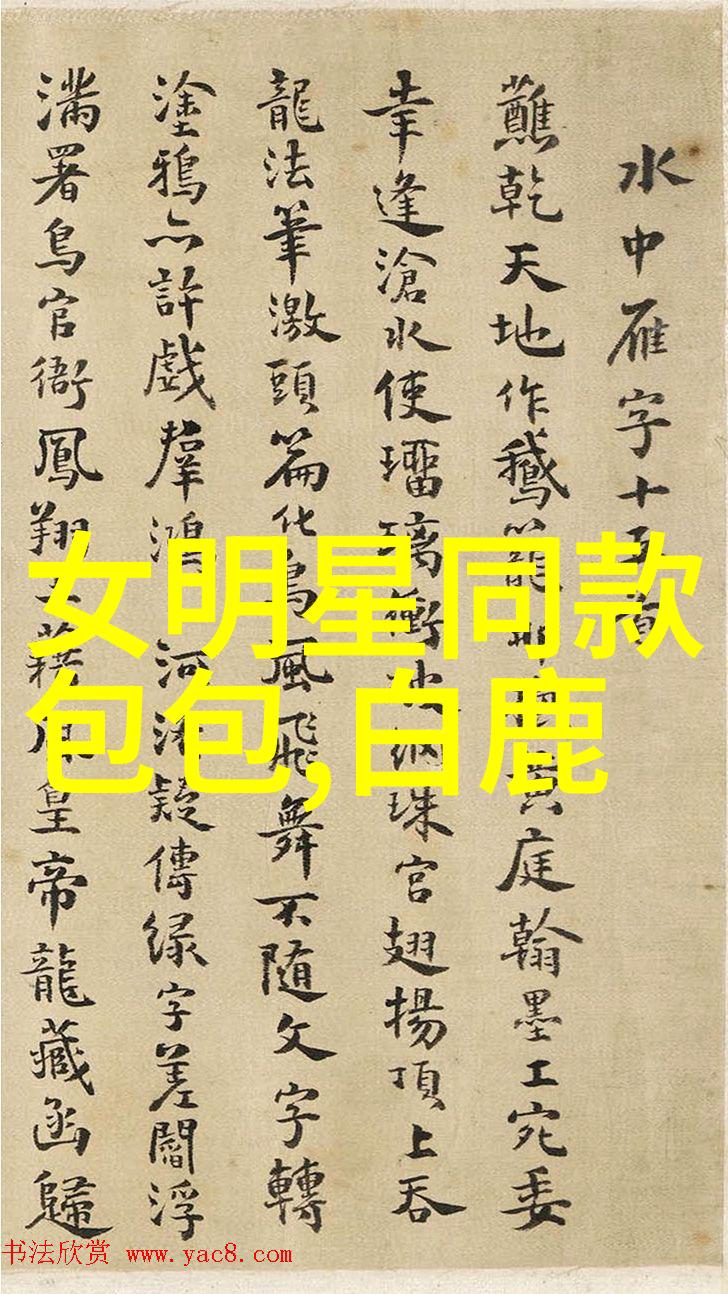 水中雁字十五首
蘸乾天地作鵝籠 黃庭翰墨工宛委
幸逢滄水使瑠璃衝 珠宮翅揚頂上吞
龍法筆激頭篇化鳥風飛舞不隨文字轉
塗鴉亦許戲羣鴻 河洛疑傳緑字差閻浮
滿署鳥官衙鳳翔 皇帝龍藏函歸
女明星同款
包包,白鹿
书法欣赏 www.yac8.com